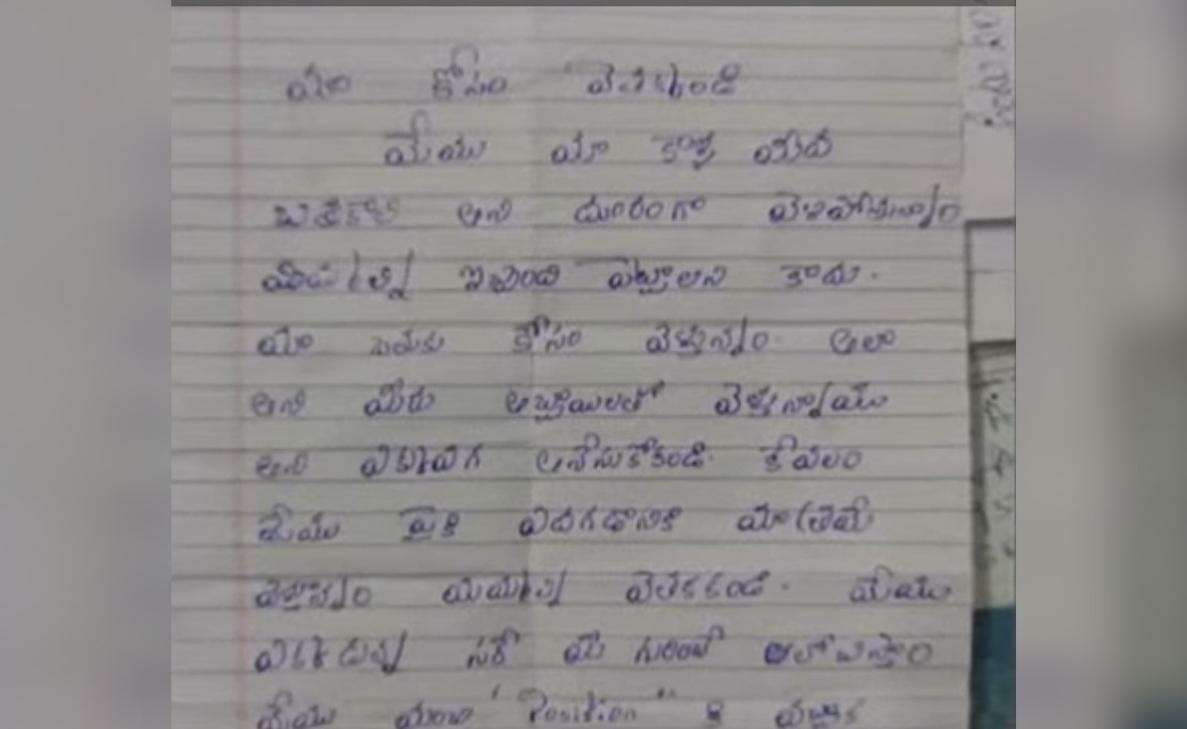 మా కోసం వెతకకండి
మేము మా కాళ్ళ మీద
బతకాలి అని దూరంగా వెళిపోతున్నాం
మిమ్మల్ని ఇబ్బంది పెట్టాలని కాదు.
మా బతుకు కోసం వెళ్తున్నాం. అలా
అని మీరు అబ్బాయిలతో వెళ్తున్నాము
అని అనేసుకోకండి. కేవలం
మేము పైకి ఎదగడానికి మాత్రమే
వెళ్తున్నాం మమ్మల్ని వెతకకండి. మేము
ఎక్కడున్న సరే మీ గురించి ఆలోచిస్తాం
మేము మంచి "Position" కి